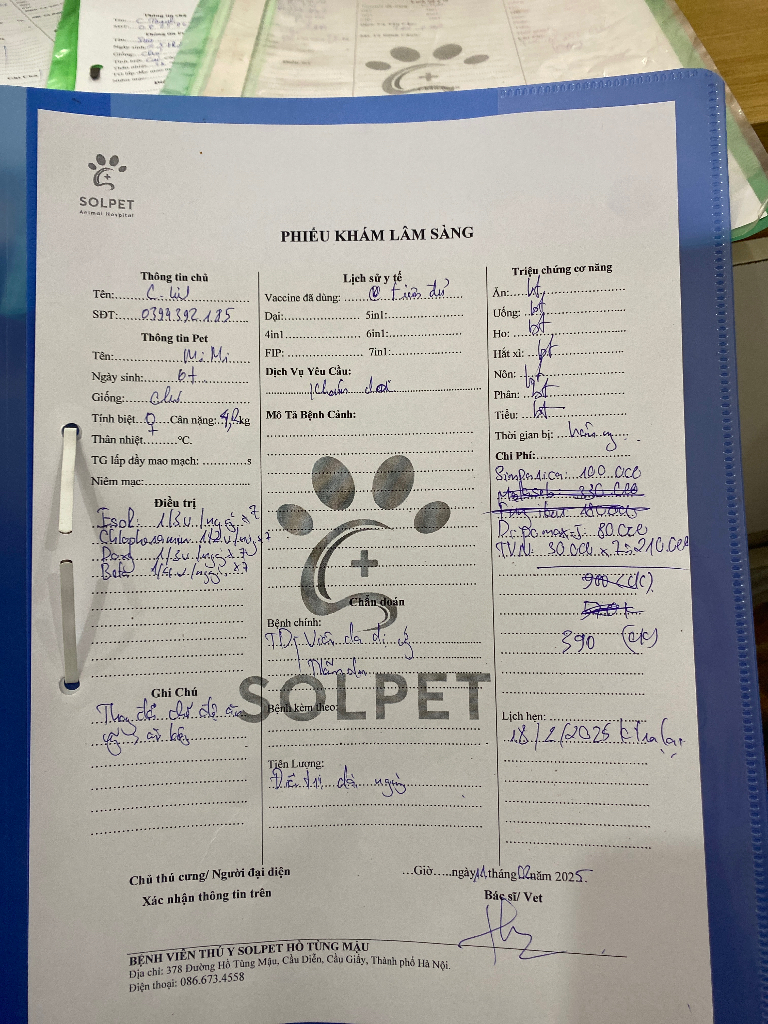 SOLPET
Animal Hospital
PHIẾU KHÁM LÂM SÀNG
Thông tin chủ
Tên:
SĐT: 0399392185
Thông tin Pet
Tên: Mi Mi
Ngày sinh: 6t
Giống: chó
Tính biệt ♀ Cân nặng: 4,2 kg
Thân nhiệt °C.
TG lấp đầy mao mạch: s
Niêm mạc:
Điều trị
1/3v/ngày x7
1/2v/ngày x7
1/3v/ngày x7
1/4v/ngày x7
Ghi Chú
Thay đổi chế độ ăn
Lịch sử y tế
Vaccine đã dùng:
Dại: 5in1:
4in1 6in1:
FIP: 7in1:
Dịch Vụ Yêu Cầu:
Khám da
Mô Tả Bệnh Cảnh:
SOLPET
Chẩn đoán
Bệnh chính:
TD: Viêm da dị ứng
Nấm da
Bệnh kèm theo:
Tiên Lượng:
Điều trị dài ngày
Triệu chứng cơ năng
Ăn: bt
Uống: bt
Ho: bt
Hắt xì: bt
Nôn: bt
Phân: bt
Tiểu: bt
Thời gian bị:
Chi Phí:
Simparica: 100.000
80.000
TVN: 30.000 x 7 = 210.000
390 (ck)
Lịch hẹn:
18/2/2025 ktra lại
Chủ thú cưng/ Người đại diện
Xác nhận thông tin trên
Giờ ngày 11 tháng 02 năm 2025
Bác sĩ/ Vet
BỆNH VIỆN THÚ Y SOLPET HỒ TÙNG MẬU
Địa chỉ: 378 Đường Hồ Tùng Mậu, Cầu Diễn, Cầu Giấy, Thành phố Hà Nội.
Điện thoại: 086.673.4558